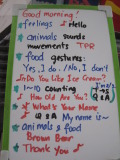 Good morning!
feelings Hello
animals sounds
movements TPR
food gestures:
Yes, I do. / No, I don't
Do You Like Ice Cream?
1-10 counting
How Old Are You?
What's Your Name
Q & A My name is
animals & food
Brown Bear
Thank you